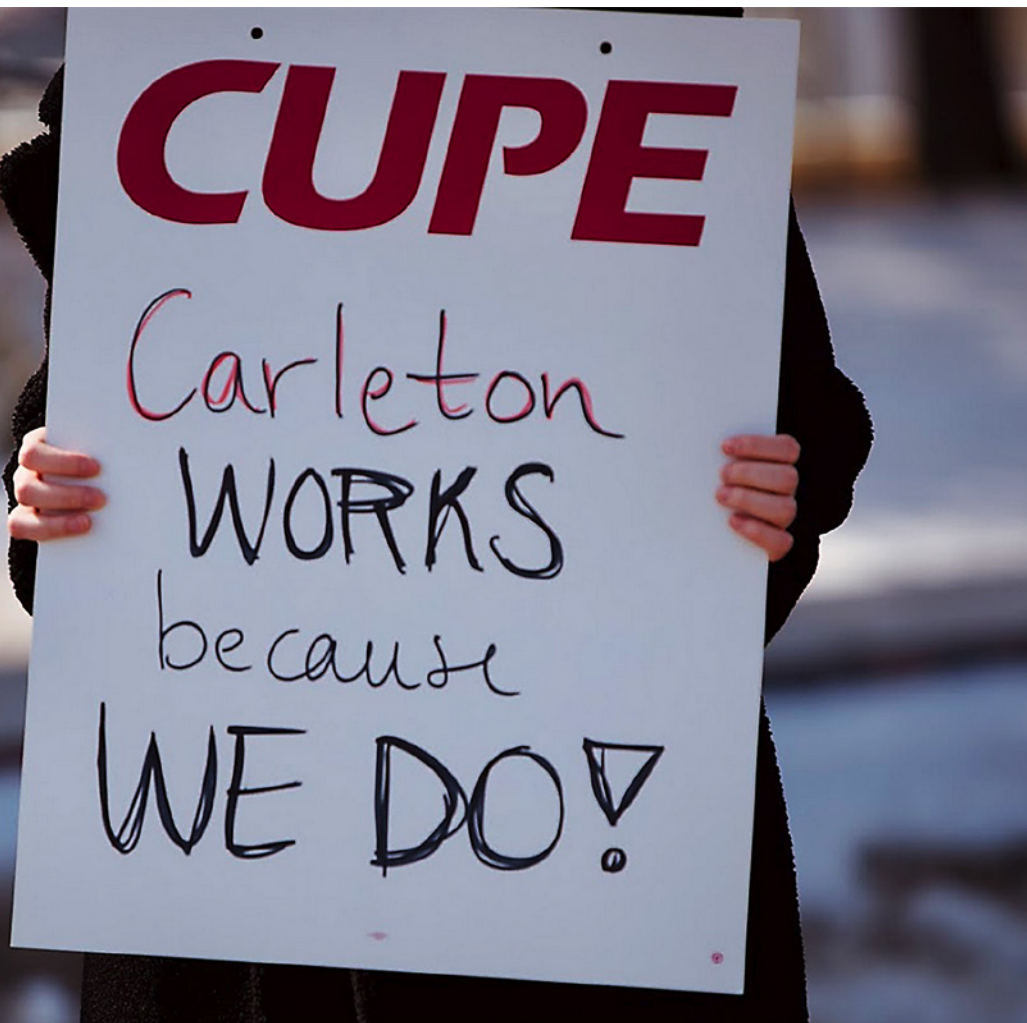 CUPE
Carleton
WORKS
because
WE DO!